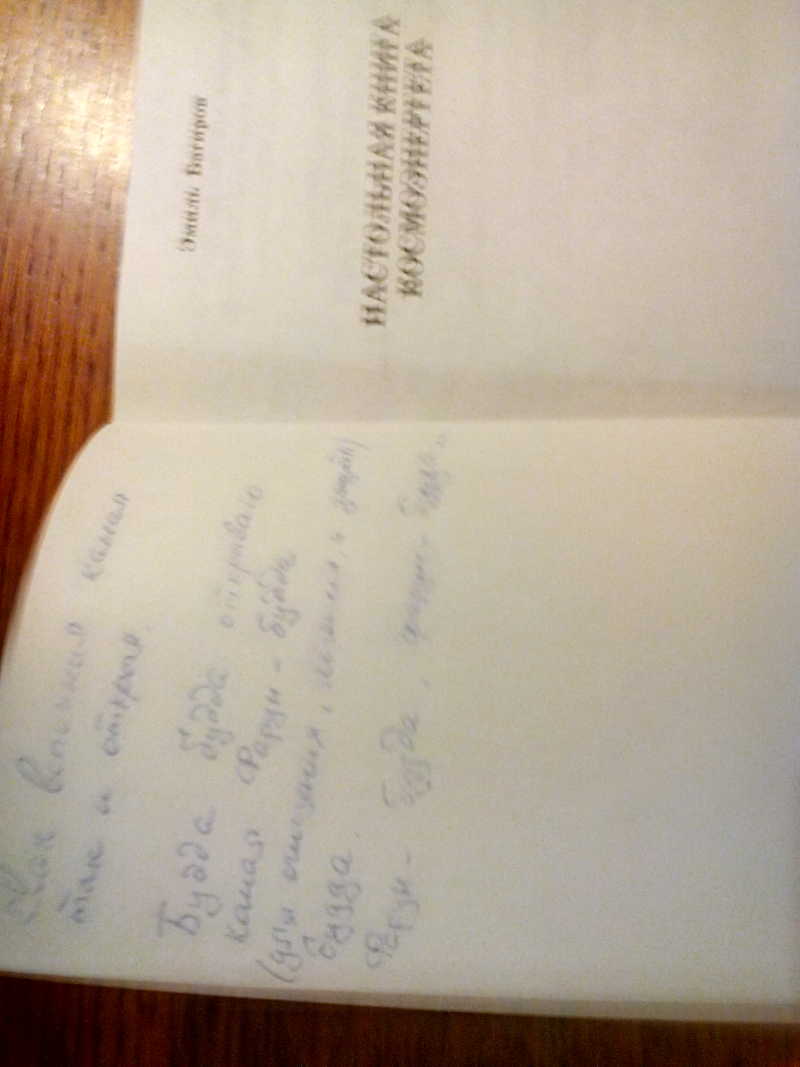 Как вспомнил канал
так и открыл.
Будда будда открываю
канал Фарун - будда
(для очищения, и защит)
будда.
Фарун - будда, фарун - будда..
Эмиль Багиров
НАСТОЛЬНАЯ КНИГА
КОСМОЭНЕРГЕТА